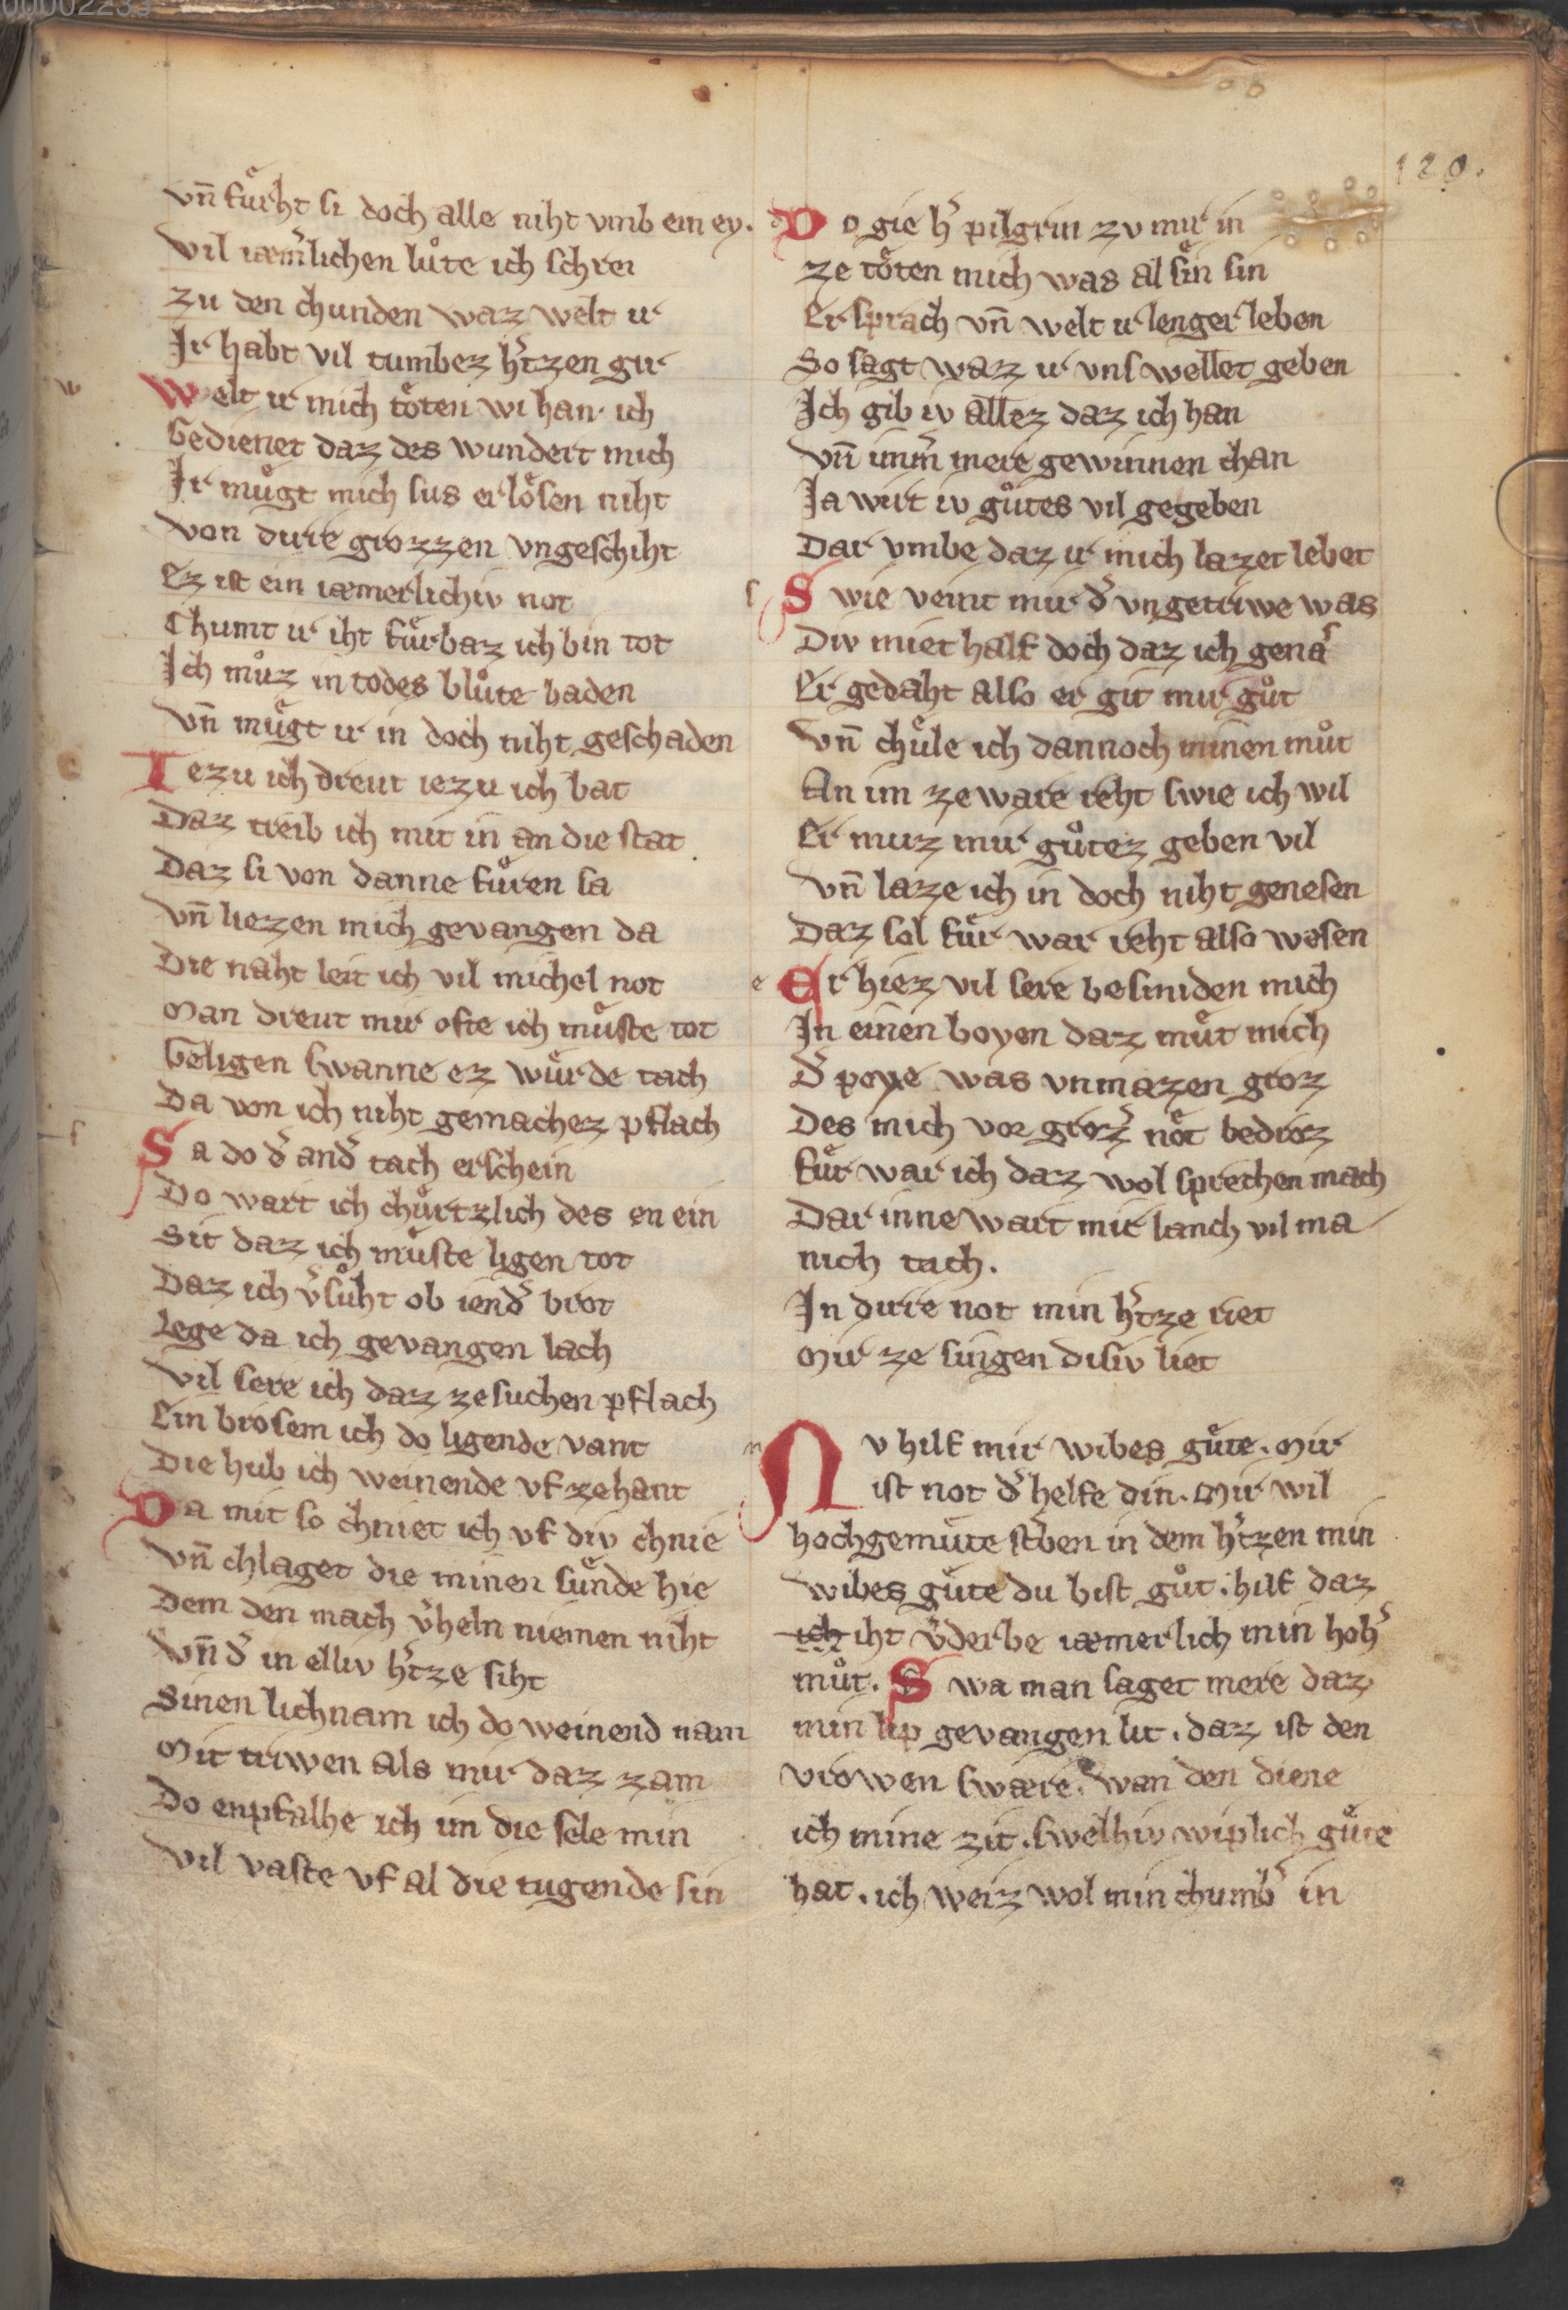 00002233
120.
vn̄ fuͤrht si doch alle niht vmb ein ey.
Vil iæm̄lichen luͦte ich schrei
zu den chunden waz welt ir
Ir habt vil tumbez h̕tzen gir
Welt ir mich toͤten wi han ich
Gedienet daz des wundert mich
Ir muͤgt mich sus erloͤsen niht
Von dirre grozzen vngeschiht
Ez ist ein iæmerlichiv not
Chumt ir iht fuͤrbaz ich bin tot
Ich muͦz in todes bluͦte baden
Vn̄ muͤgt ir in doch niht geschaden
Iezu ich dreut iezu ich bat
Daz treib ich mit in an die stat
Daz si von danne fuͦren sa
Vn̄ liezen mich gevangen da
Die naht leit ich vil michel not
Man dreut mir ofte ich muͤste tot
Geligen swanne ez wuͤrde tach
Da von ich niht gemachez pflach
Sa do d̕ and̕ tach erschein
Do wart ich chuͤrtzlich des en ein
Sit daz ich muͤste ligen tot
Daz ich v̕suͦht ob iend̕ brot
Lege da ich gevangen lach
Vil sere ich daz ze suchen pflach
Ein brosem ich do ligende vant
Die hub ich weinende vf zehant
Da mit so chniet ich vf div chnie
Vn̄ chlaget die minen suͤnde hie
Dem den mach v̕heln niemen niht
Vn̄ d̕ in elliv h̕tze siht
Sinen lichnam ich do weinend nam
Mit triwen als mir daz zam
Do enpfalhe ich im die sele min
Vil vaste vf al die tugende sin
Do gie h̕ pilgrin zv mir in
ze toͤten mich was al sin sin
Er sprach vn̄ welt ir lenger leben
So sagt waz ir vns wellet geben
Ich gib iv allez daz ich han
Vn̄ im̄m̄ mere gewinnen chan
Ja wirt iv guͦtes vil gegeben
Dar vmbe daz ir mich lazet lebet
Swie veint mir d̕ vngetriwe was
Div miet half doch daz ich genas
Er gedaht also er git mir guͦt
Vn̄ chuͤle ich dannoch minen muͦt
An im ze ware reht swie ich wil
Er muz mir guͦtez geben vil
Vn̄ laze ich in doch niht genesen
Daz sol fuͤr war reht also wesen
Er hiez vil sere besmiden mich
In einen boyen daz muͤt mich
D̕ poye was vnmazen groz
Des mich vor groz̕ noͤt bedroz
Fuͤr war ich daz wol sprechen mach
Dar inne wart mir lanch vil ma
nich tach.
In dirre not min h̕tze riet
Mir ze singen disiv liet
Nv hilf mir wibes guͤte. Mir
ist not d̕ helfe din. Mir wil
hochgemuͤte st̕ben in dem h̕tzen min
wibes guͤte du bist guͦt. hilf daz
ich iht v̕derbe iæmerlich min hoh̕
muͦt. Swa man saget mere daz
min lip gevangen lit. daz ist den
vrowen swære. wan den diene
ich mine zit. swelhiv wiplich guͤte
hat. ich weiz wol min chumb̕ in